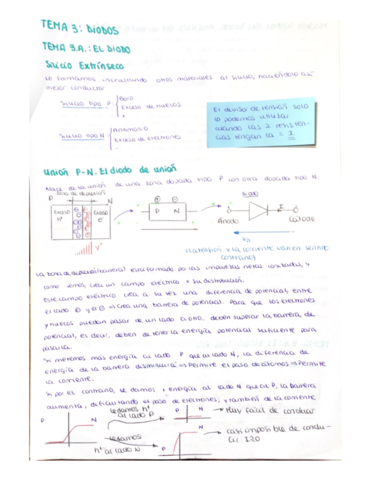 TEMA 3: DIODOS
TEMA 3.A.: EL DIODO
Silicio Extrínseco
Lo formamos incrustando otros materiales al silicio, haciéndolo así
mejor conductor
Silicio tipo P
Boro
Exceso de huecos
Silicio tipo N
Antimonio
Exceso de electrones
El divisor de tensión solo
lo podemos utilizar
cuando las 2 resisten-
cias tengan la = I
Unión P-N. El diodo de unión
Nace de la unión de una zona dopada tipo P con otra dopada tipo N.
P
N
P
N
Diodo
Ánodo
Cátodo
(La tensión y la corriente van en sentido
contrario)
La zona de deplexión (barrera) está formada por las impurezas
como iones, crea un campo eléctrico
este campo eléctrico crea a su vez una diferencia de potencial entre
el lado ⊖ y el ⊕ → Crea una barrera de potencial. Para que los electrones
y huecos puedan pasar de un lado a otro, deben superar la barrera de
potencial, es decir, deben de tener la energía potencial suficiente para
pasarla.
Si metemos más energía al lado P que al lado N, la diferencia de
energía de la barrera disminuirá → Permite el paso de electrones → Permite
la corriente.
Si por el contrario, le damos + energía al lado N que al P, la barrera
aumenta, dificultando el paso de electrones, y también de la corriente
P
N
le damos h⁺
al lado P
P
N
Muy fácil de conducir
le damos
h⁺ al lado N
P
N
casi imposible de condu-
cir I≃0